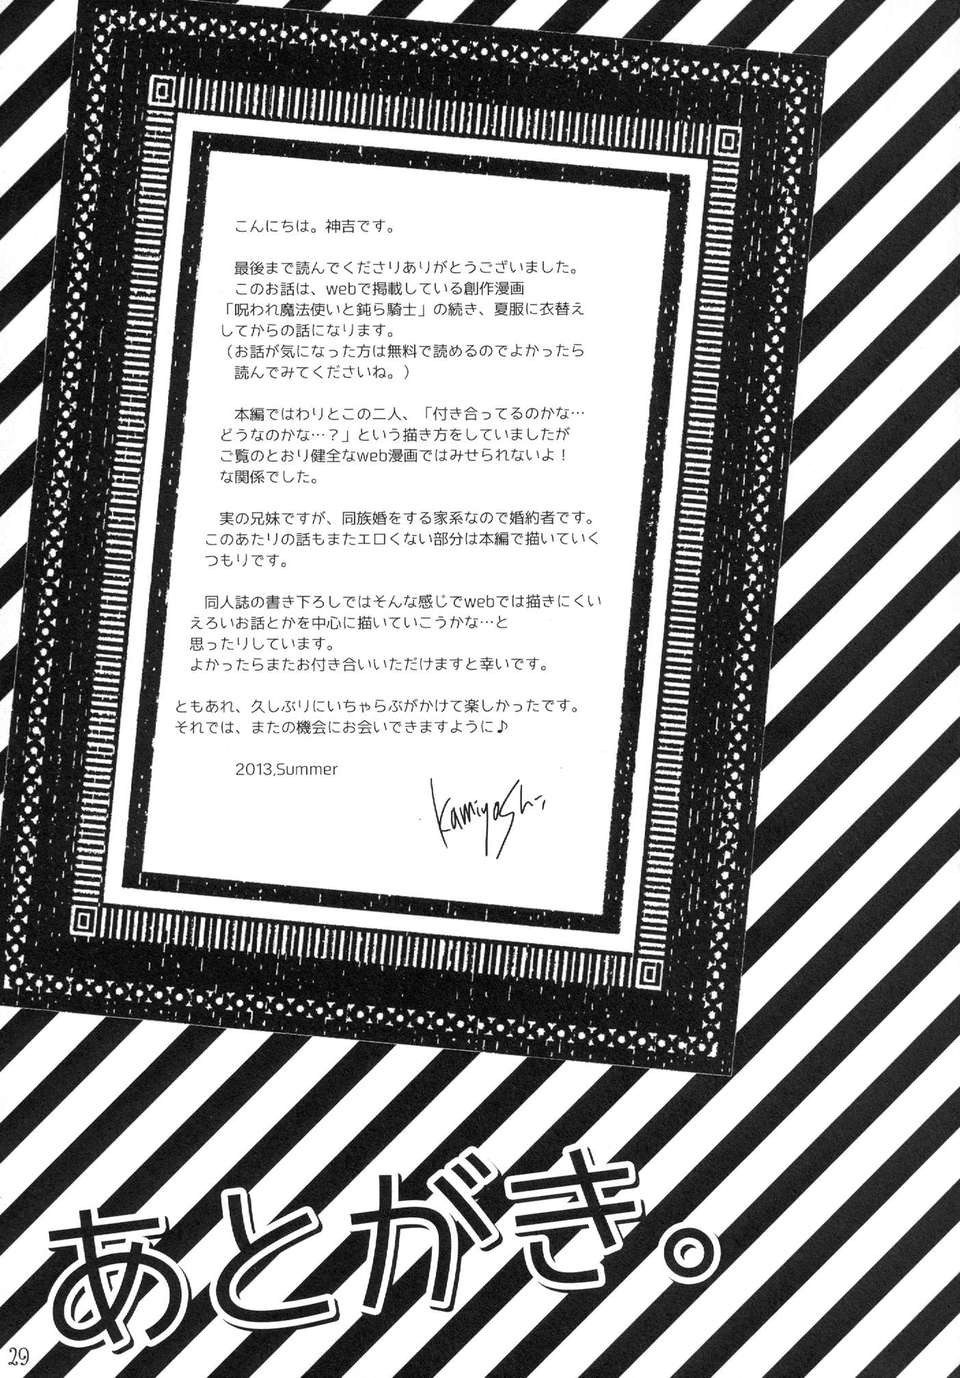 こんにちは。神吉です。
最後まで読んでくださりありがとうございました。
このお話は、webで掲載している創作漫画
「呪われ魔法使いと鈍ら騎士」の続き、夏服に衣替え
してからの話になります。
（お話が気になった方は無料で読めるのでよかったら
読んでみてくださいね。）
本編ではわりとこの二人、「付き合ってるのかな…
どうなのかな…？」という描き方をしていましたが
ご覧のとおり健全なweb漫画ではみせられないよ！
な関係でした。
実の兄妹ですが、同族婚をする家系なので婚約者です。
このあたりの話もまたエロくない部分は本編で描いていく
つもりです。
同人誌の書き下ろしではそんな感じでwebでは描きにくい
えろいお話とかを中心に描いていこうかな…と
思ったりしています。
よかったらまたお付き合いいただけますと幸いです。
ともあれ、久しぶりにいちゃらぶがかけて楽しかったです。
それでは、またの機会にお会いできますように♪
2013,Summer
Kamiyoshi
あとがき。
29